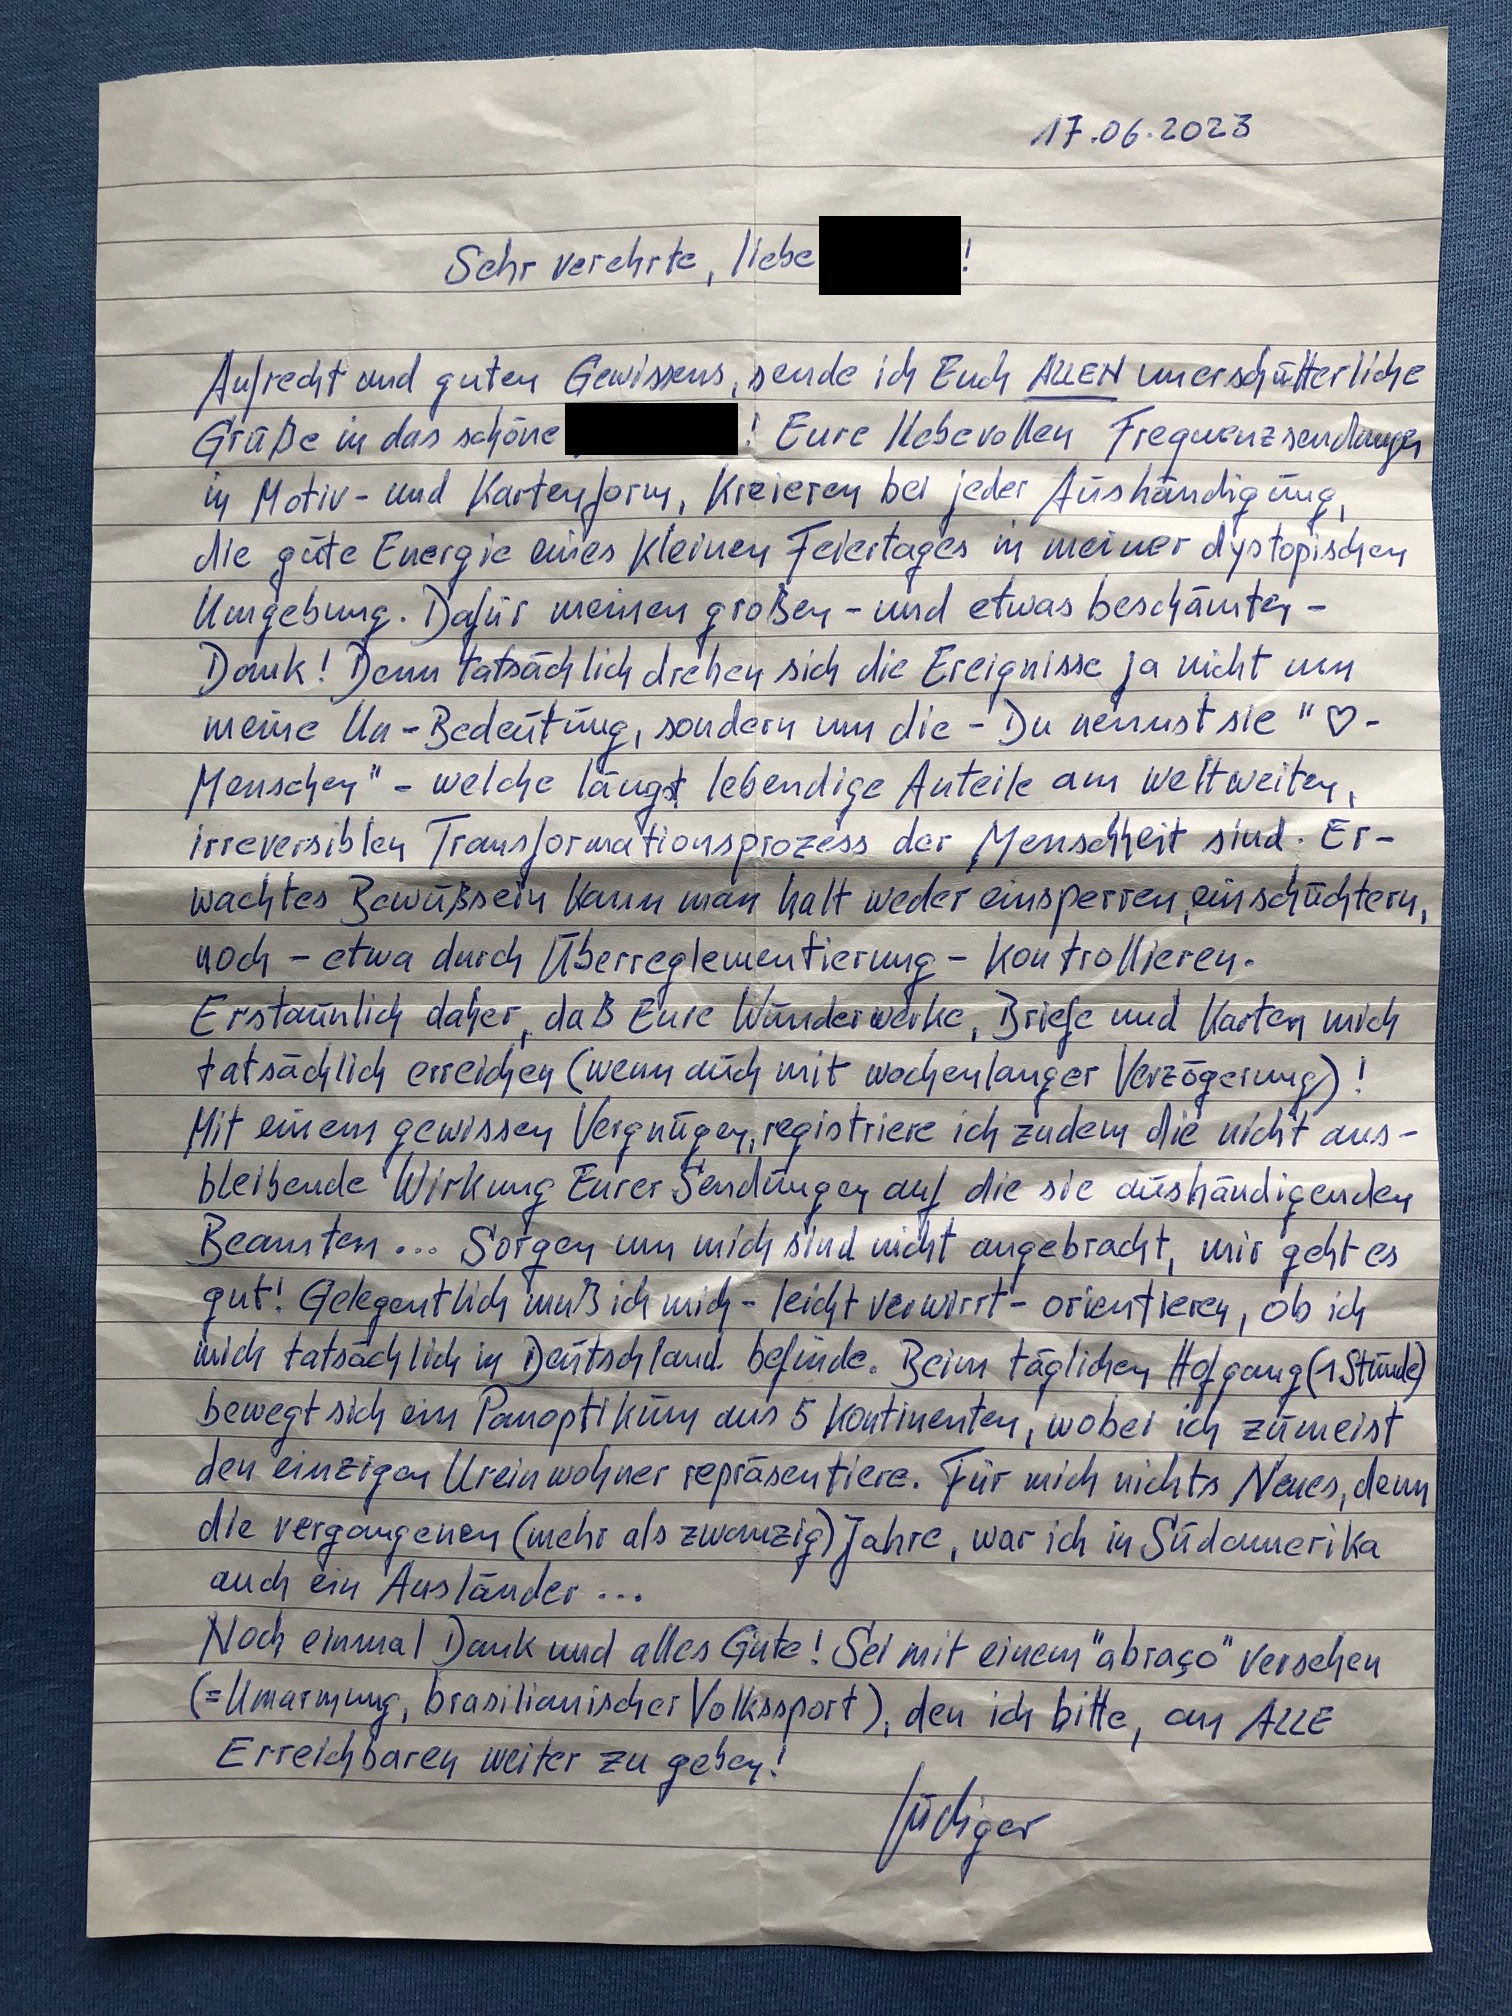 17.06.2023
Sehr verehrte, liebe !
Aufrecht und guten Gewissens, sende ich Euch ALLEN unerschütterliche
Grüße in das schöne ! Eure liebevollen Frequenzsendungen
in Motiv- und Kartenform, kreieren bei jeder Aushändigung,
die gute Energie eines kleinen Feiertages in meiner dystopischen
Umgebung. Dafür meinen großen - und etwas beschämten -
Dank! Denn tatsächlich drehen sich die Ereignisse ja nicht um
meine Un-Bedeutung, sondern um die - Du nennst sie "♡-
Menschen" - welche längst lebendige Anteile am weltweiten,
irreversiblen Transformationsprozess der Menschheit sind. Er-
wachtes Bewußsein kann man halt weder einsperren, einschüchtern,
noch - etwa durch Überreglementierung - kontrollieren.
Erstaunlich daher, daß Eure Wunderwerke, Briefe und Karten mich
tatsächlich erreichen (wenn auch mit wochenlanger Verzögerung)!
Mit einem gewissen Vergnügen, registriere ich zudem die nicht aus-
bleibende Wirkung Eurer Sendungen auf die sie aushändigenden
Beamten... Sorgen um mich sind nicht angebracht, mir geht es
gut! Gelegentlich muß ich mich - leicht verwirrt - orientieren, ob ich
mich tatsächlich in Deutschland befinde. Beim täglichen Hofgang (1 Stunde)
bewegt sich ein Panoptikum aus 5 Kontinenten, wobei ich zumeist
den einzigen Ureinwohner repräsentiere. Für mich nichts Neues, denn
die vergangenen (mehr als zwanzig) Jahre, war ich in Südamerika
auch ein Ausländer...
Noch einmal Dank und alles Gute! Sei mit einem "abraço" versehen
(=Umarmung, brasilianischer Volkssport), den ich bitte, an ALLE
Erreichbaren weiter zu geben!
Rüdiger